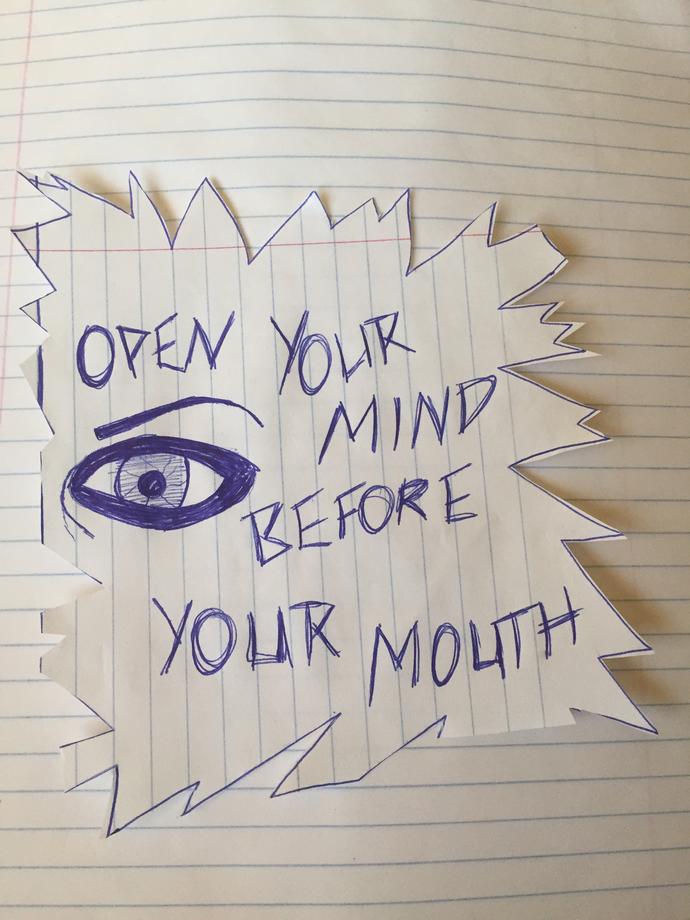 OPEN YOUR
MIND
BEFORE
YOUR MOUTH